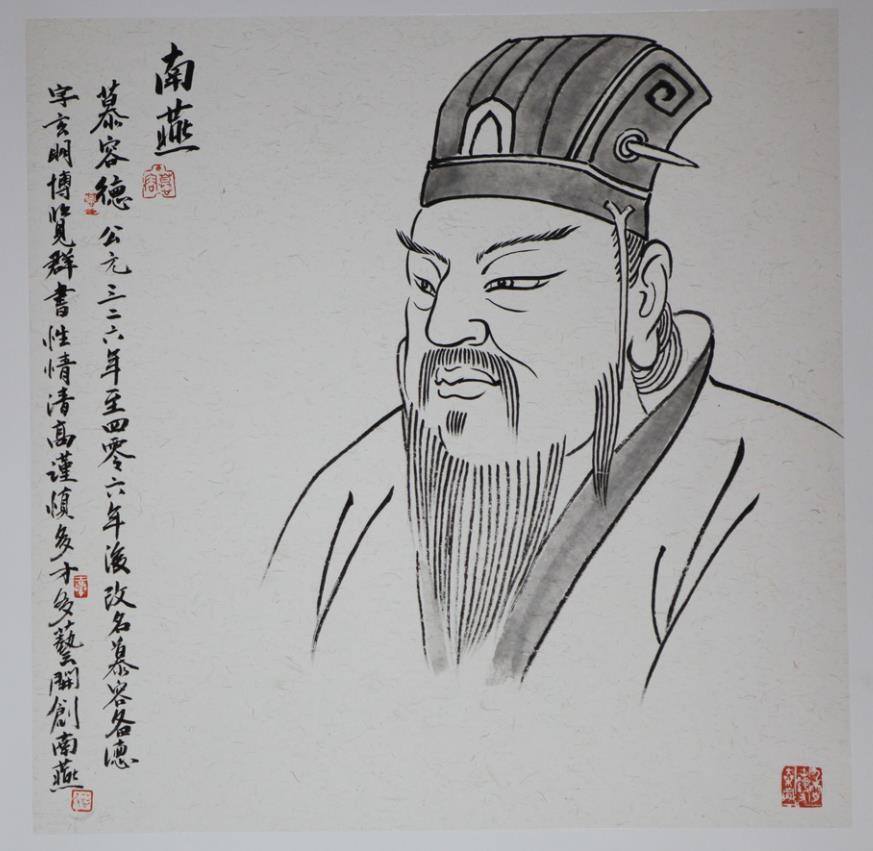 南燕
慕容德公元三二六年至四零六年後改名慕容备德
字玄明博覽群書性情清高謹慎多才多藝開創南燕